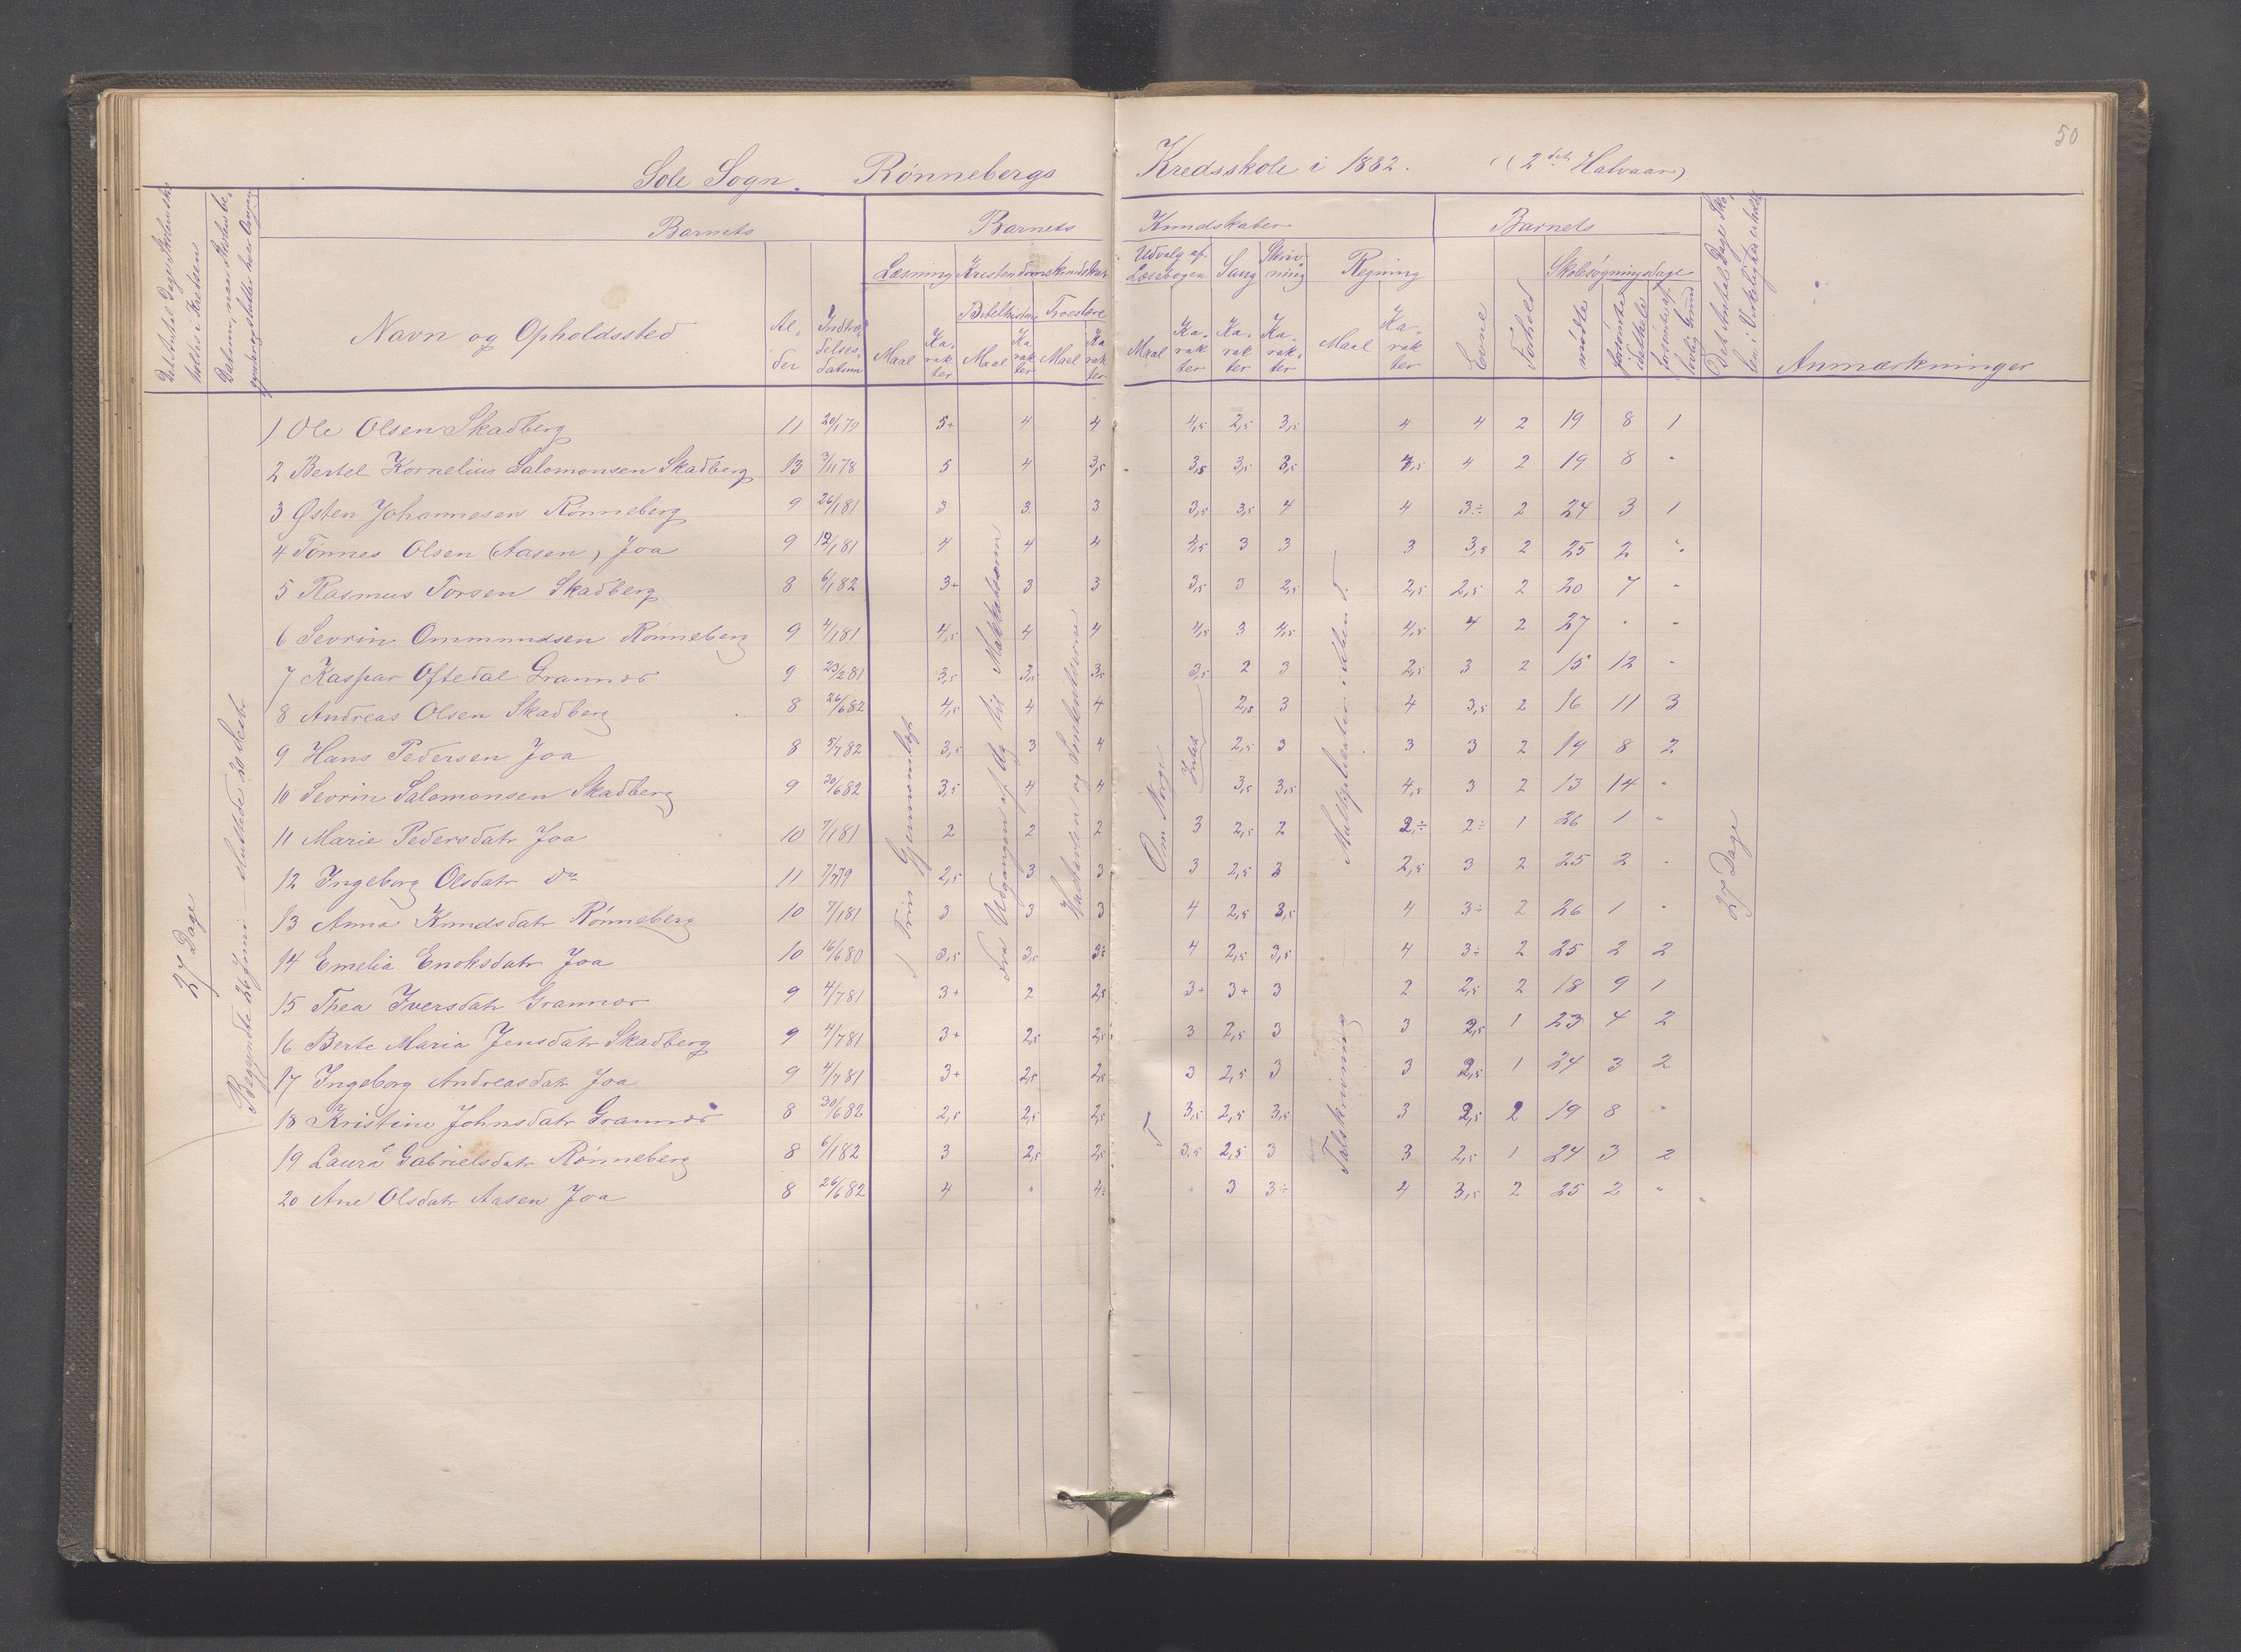 50
Sole Sogn. Rønnebergs Kredsskole i 1882. (2det Halvaar)
Det Antal Dage Skolen skal holdes i Kredsen
Datum, naar Skolen be-
Barnets
Barnets Kundskaber
Barnets
Det Antal Dage Sko-
len i Virkeligheden holdtes
Anmærkninger
Navn og Opholdssted
Al-
der
Indtræ-
delses-
datum
Læsning
Kristendomskundskab
Bibelhistorie
Troeslære
Udvalg af
Læsebogen
Sang
Skriv-
ning
Regning
Evne
Forhold
Skolesøgningsdage
mødte
forsømte
idethele
Maal Ka-
rak
ter
27 Dage
Begyndte 26 Juni – sluttede 20 Decbr
I Trin Gjennemlæst
Fra Udgangen af Æg til Makkabæerne
Om Norge
Intet
Talskrivning – Multiplikation
27 Dage
1 Ole Olsen Skadberg 11 20/1 79 5+ 4 4 4,5 2,5 3,5 4 4 2 19 8 1
2 Bertel Kornelius Salomonsen Skadberg 13 3/11 78 5 4 3,5 3,5 3,5 3,5 4,5 4 2 19 8 "
3 Østen Johannesen Rønneberg 9 26/1 81 3 3 3 3,5 3,5 4 4 3÷ 2 24 3 1
4 Tønnes Olsen (Aasen) Joa 9 12/1 81 4 4 4 4,5 3 3 3 3,5 2 25 2 "
5 Rasmus Torsen Skadberg 8 6/1 82 3+ 3 3 3,5 3 2,5 2,5 2,5 2 20 7 "
6 Sevrin Ommundsen Rønneberg 9 4/1 81 4,5 4 4 4,5 3 4,5 4,5 4 2 27 " "
7 Kaspar Oftedal Grannes 9 23/2 81 3,5 3,5 3,5 3,5 2 3 2,5 3 2 15 12 "
8 Andreas Olsen Skadberg 8 26/6 82 4,5 4 4 2,5 3 4 3,5 2 16 11 3
9 Hans Pedersen Joa 8 5/7 82 3,5 3 4 2,5 3 3 3 2 19 8 2
10 Sevrin Salomonsen Skadberg 9 30/6 82 3,5 4 4 3,5 3,5 4,5 3 2 13 14 "
11 Marie Pedersdatr Joa 10 7/1 81 2 2 2 3 2,5 2 2÷ 2÷ 1 26 1 "
12 Ingeborg Olsdatr do 11 7/7 79 2,5 3 3 3 2,5 3 2,5 3 2 25 2 "
13 Anna Knudsdatr Rønneberg 10 7/1 81 3 3 3 4 2,5 3,5 4 3÷ 2 26 1 "
14 Emelia Enoksdatr Joa 10 16/6 80 3,5 3,5 3÷ 4 2,5 3,5 4 3÷ 2 25 2 2
15 Thea Iversdatr Grannes 9 4/7 81 3+ 2 2,5 3+ 3+ 3 2 2,5 2 18 9 1
16 Berte Maria Jensdatr Skadberg 9 4/7 81 3+ 2,5 2,5 3 2,5 3 3 2,5 1 23 4 2
17 Ingeborg Andreasdatr Joa 9 4/7 81 3+ 2,5 2,5 3 2,5 3 3 2,5 1 24 3 2
18 Kristine Johnsdatr Grannes 8 30/6 82 2,5 2,5 2,5 3,5 2,5 3,5 3 2,5 2 19 8 "
19 Laura Gabrielsdatr Rønneberg 8 6/1 82 3 2,5 2,5 3,5 2,5 3 3 2,5 1 24 3 2
20 Ane Olsdatr Aasen Joa 8 26/6 82 4 " 4÷ " 3 3÷ 4 3,5 2 25 2 "